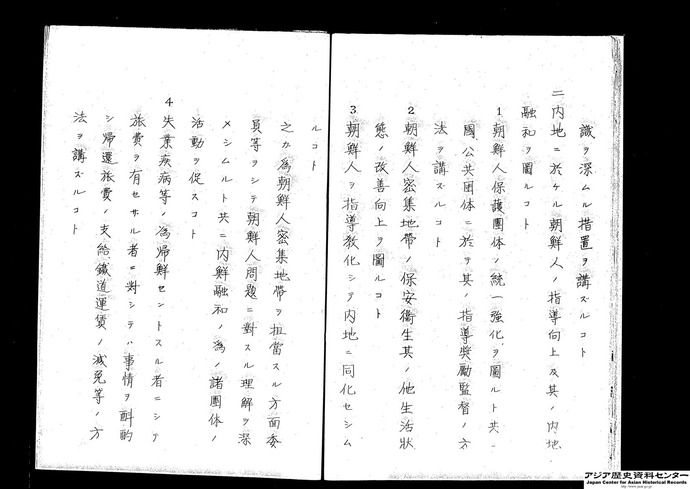 識ヲ深ムル措置ヲ講ズルコト
二 内地ニ於ケル朝鮮人ノ指導向上及其ノ内地
融和ヲ圖ルコト
1 朝鮮人保護團体ノ統一強化ヲ圖ルト共ニ
國公共団体ニ於ヲ其ノ指導奬勵監督ノ方
法ヲ講ズルコト
2 朝鮮人密集地帶ノ保安衞生其ノ他生活狀
態ノ改善向上ヲ圖ルコト
3 朝鮮人ヲ指導教化シテ内地ニ同化セシム
ルコト
之カ為朝鮮人密集地帶ヲ担當スル方面委
員等ヲシテ朝鮮人問題ニ對スル理解ヲ深
メシムルト共ニ内鮮融和ノ為ノ諸團体ノ
活動ヲ促スコト
4 失業疾病等ノ為帰鮮セントスル者ニシテ
旅費ヲ有セサル者ニ對シテハ事情ヲ酙酌
シ帰還旅費ノ支給鐵道運賃ノ減免等ノ方
法ヲ講ズルコト
アジア歴史資料センター
Japan Center for Asian Historical Records